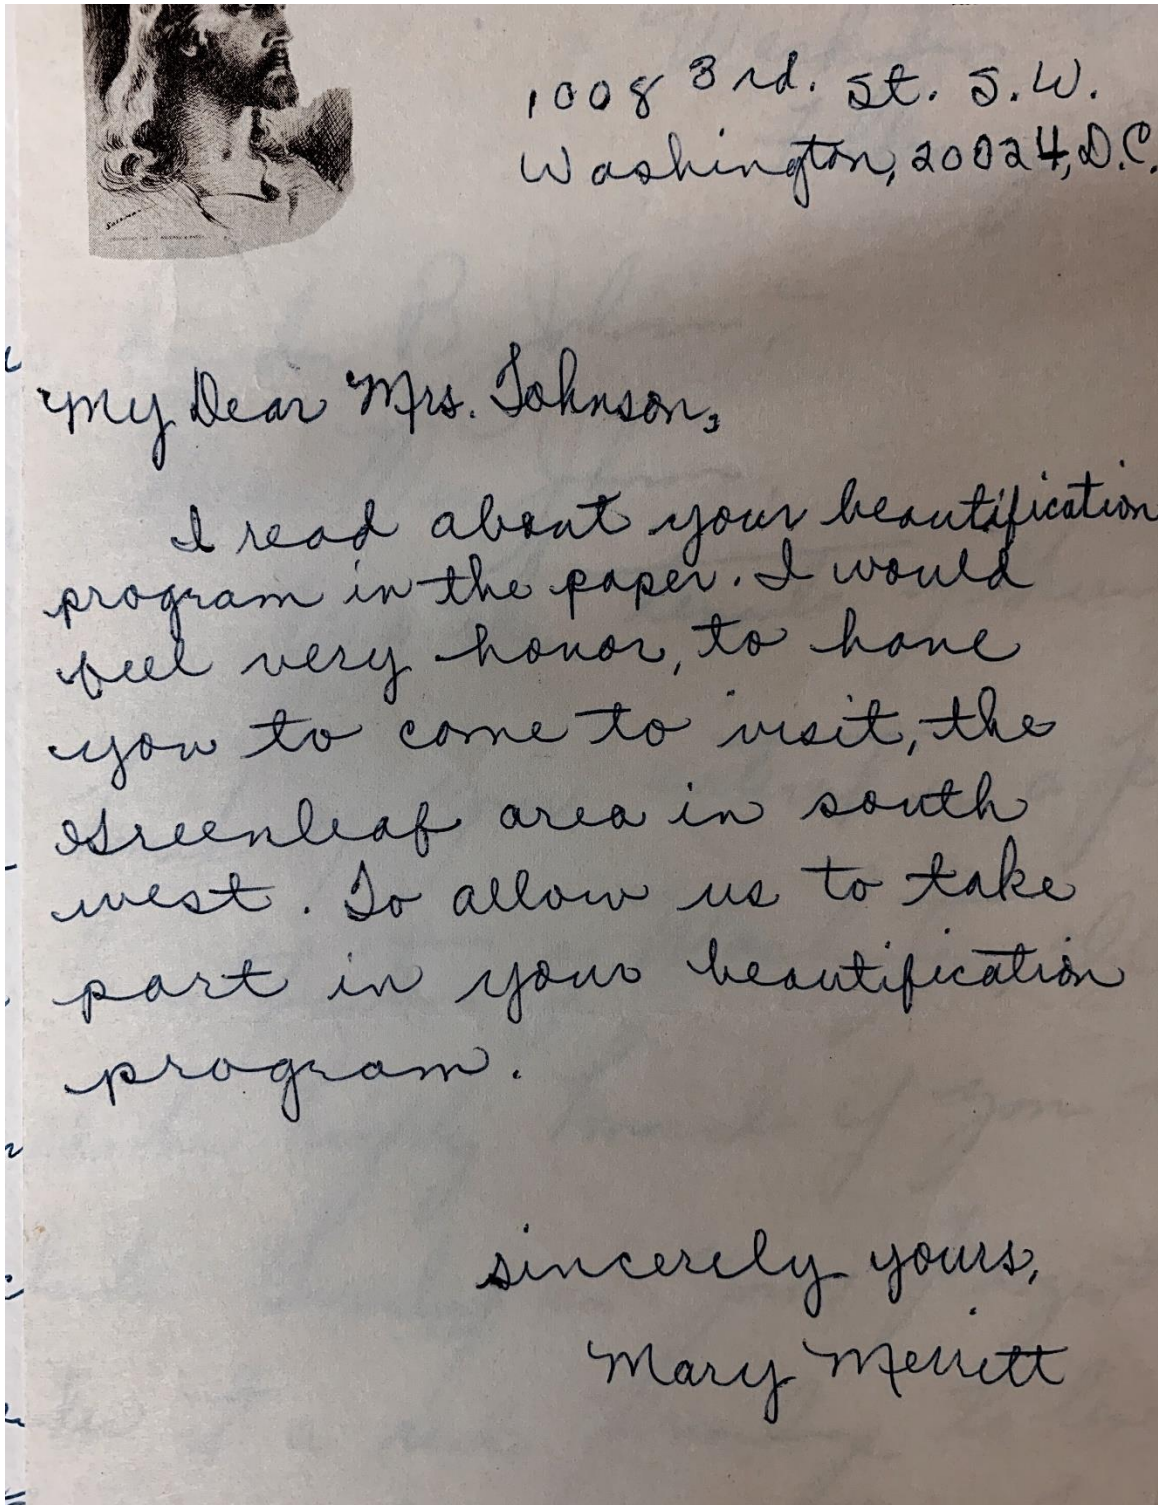 1008 3rd. St. S.W.
Washington, 20024, D.C.
My Dear Mrs. Johnson,
I read about your beautification
program in the paper. I would
feel very honor, to have
you to come to visit, the
Greenleaf area in south
west. To allow us to take
part in your beautification
program.
sincerely yours,
Mary Merritt